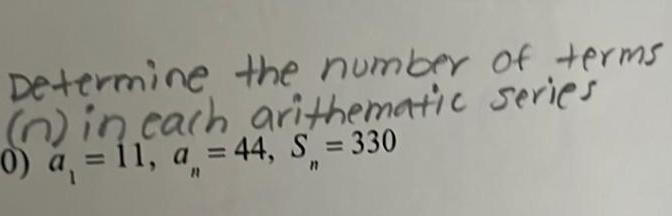 Determine the number of terms
(n) in each arithematic series
0) a₁ = 11, aₙ = 44, Sₙ = 330